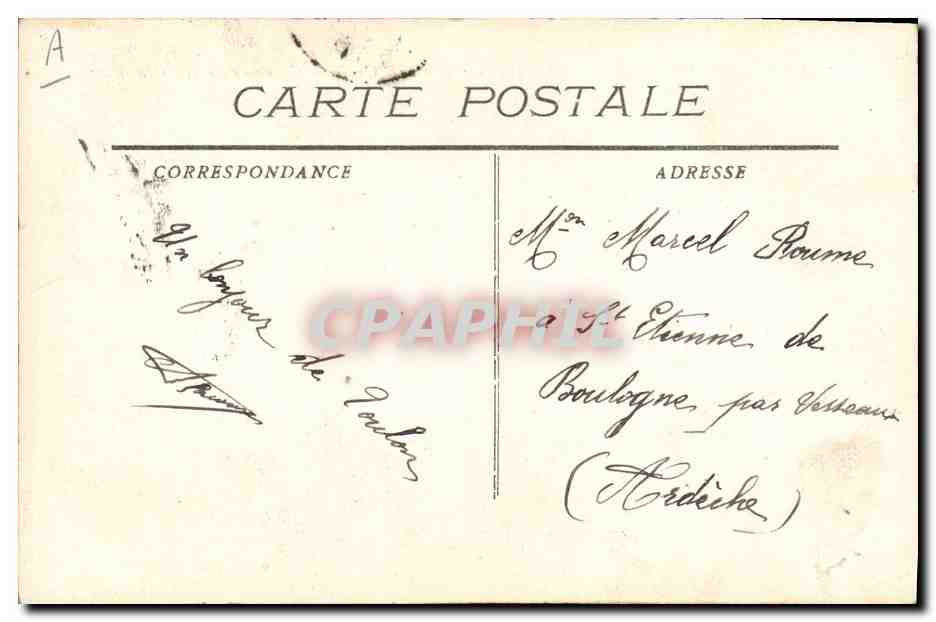 A
CARTE POSTALE
CORRESPONDANCE
Un bonjour de Toulon
ADRESSE
Mon Marcel Roume
a St Etienne de
Boulogne par Vesseaux
(Ardèche)
CPAPHIL